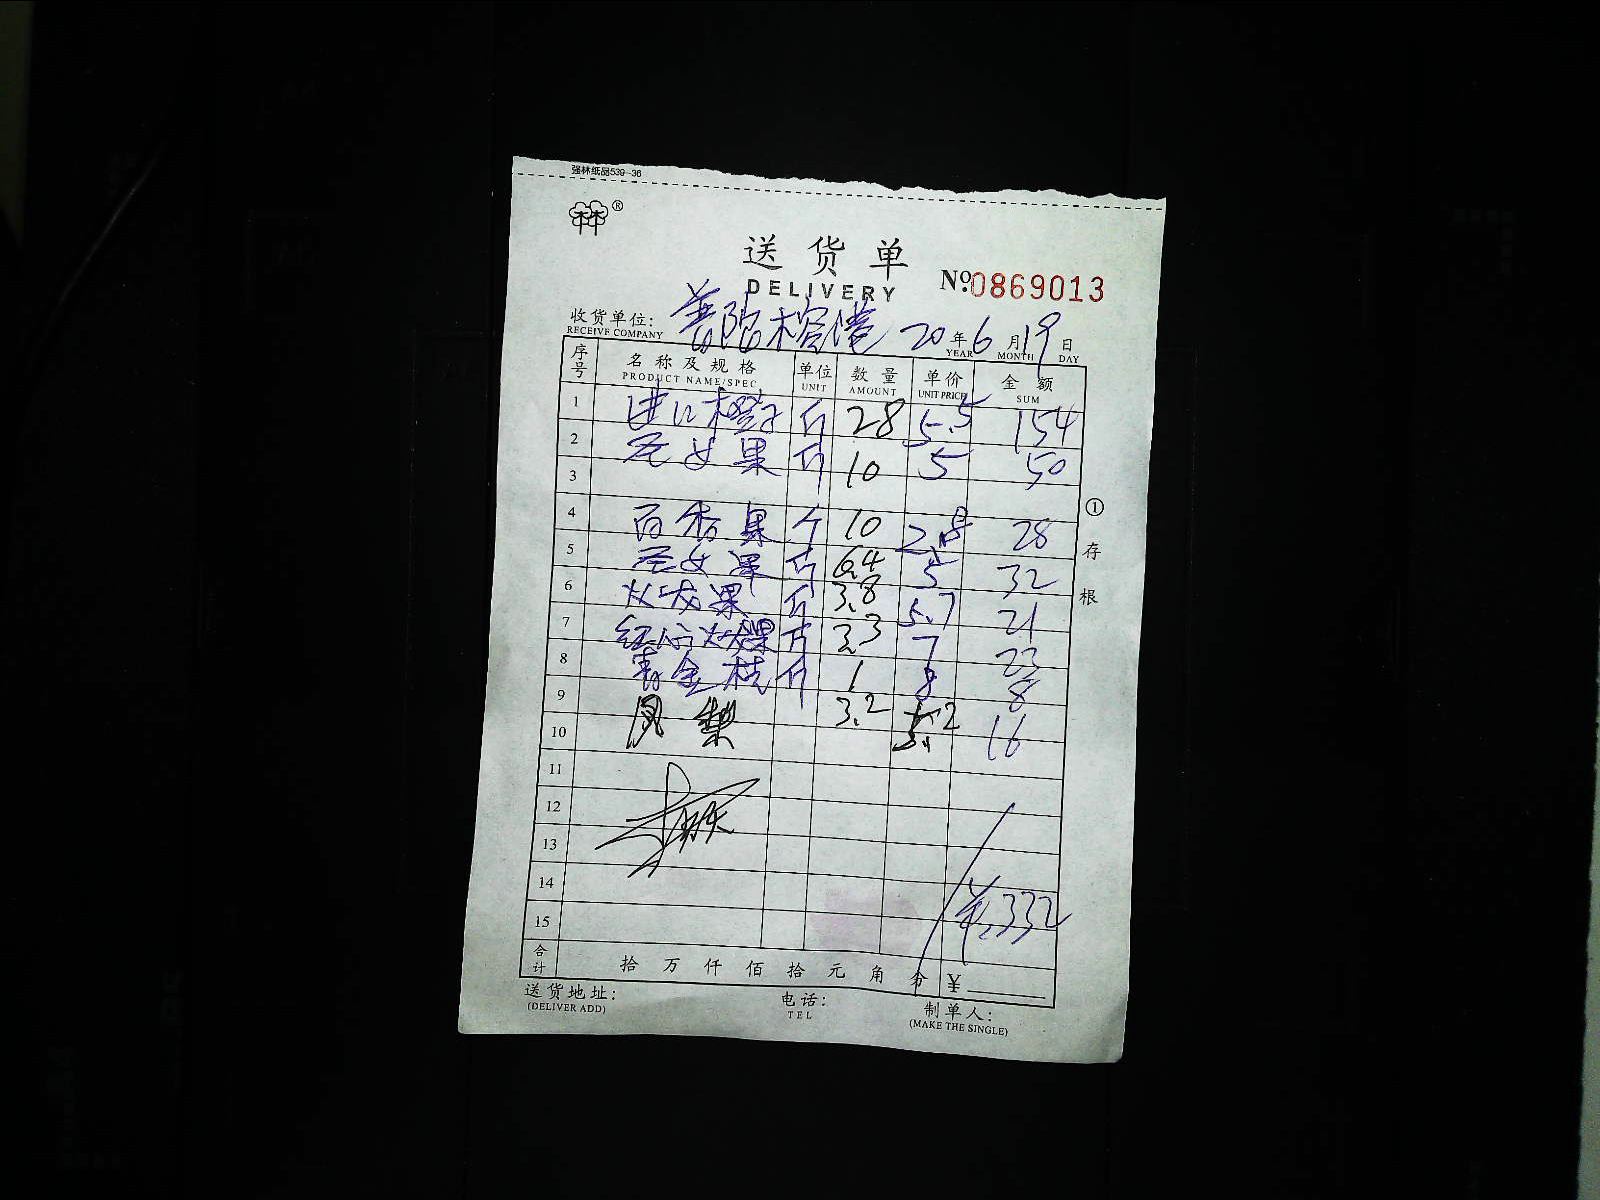 强林纸品539-36
林林®
送货单
DELIVERY
№:0869013
收货单位: 普陀榕港 20年6月19日
RECEIVE COMPANY YEAR MONTH DAY
序号 名称及规格 单位 数量 单价 金额
PRODUCT NAME/SPEC UNIT AMOUNT UNIT PRICE SUM
1 进口橙子 斤 28 5.5 154
2 圣女果 斤 10 5 50
3
4 百香果 个 10 2.8 28
5 圣女果 斤 6.4 5 32
6 火龙果 斤 3.8 5.7 21
7 红心火龙果 斤 3.3 7 23
8 青金桔 斤 1 8 8
9 凤梨 3.2 5.2 16
10
11
12
13
14
15 332
合计 拾万仟佰拾元角分 ¥
①存根
送货地址: 电话: 制单人:
(DELIVER ADD) TEL (MAKE THE SINGLE)